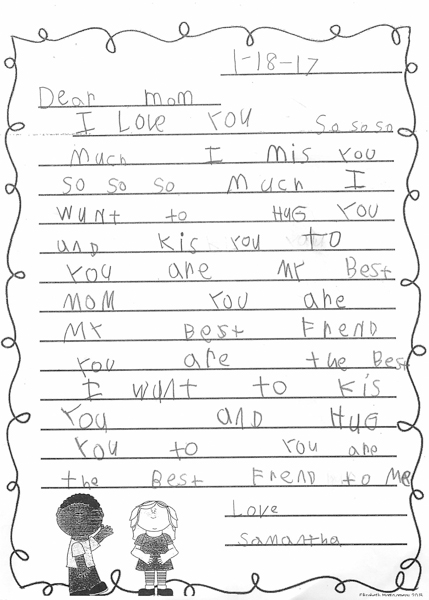 1-18-17
Dear mom
I Love you So so so
Much I mis you
so so so Much I
wunt to HuG you
and kis you to
you are My Best
MOM you are
My Best FrenD
you are the Best
I wunt to kis
you anD HuG
you to you are
the Best FrenD to Me
Love
Samantha